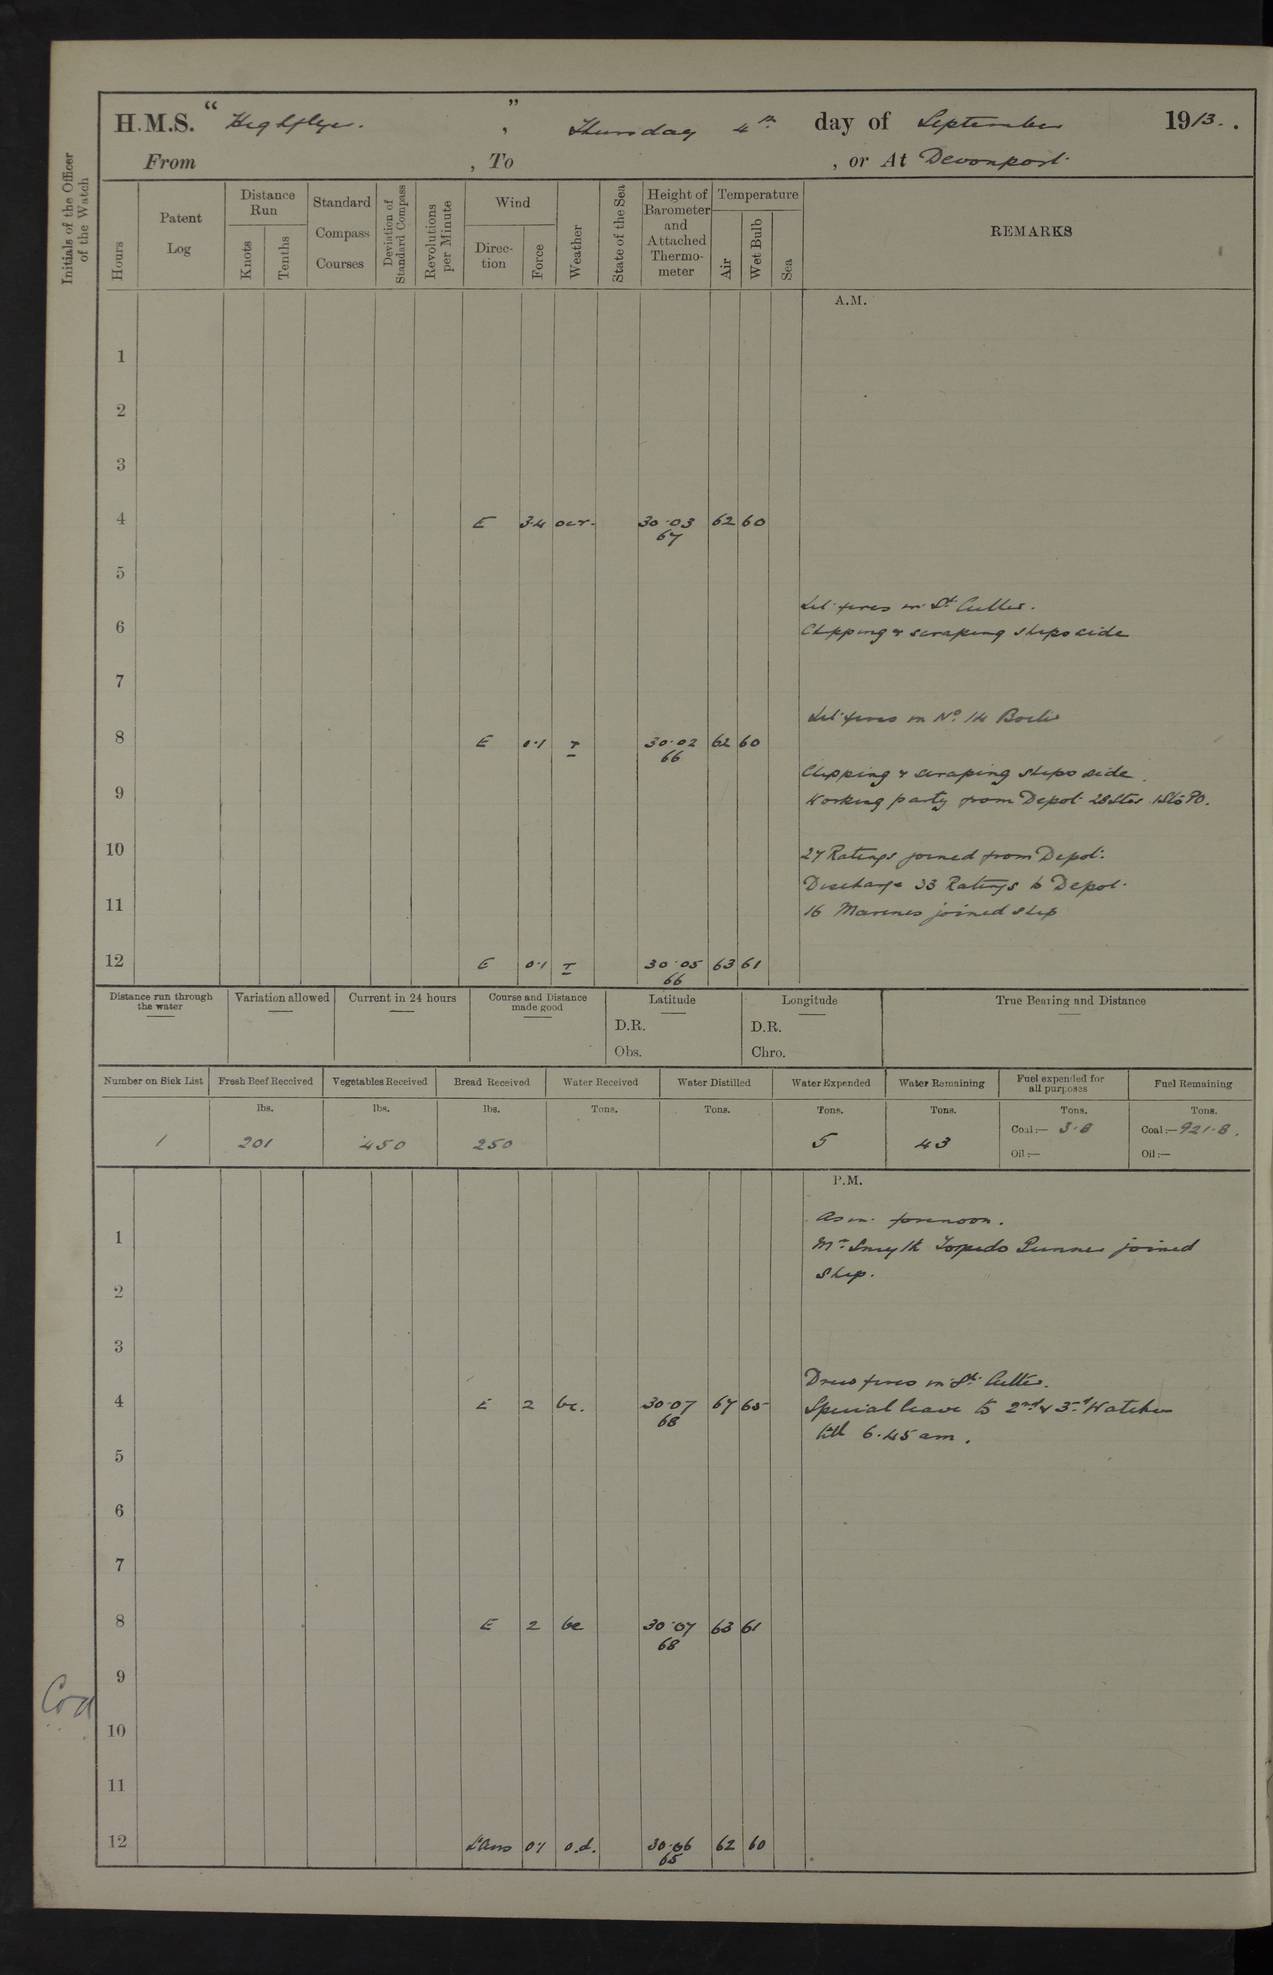 H.M.S. “ Highflyer. ” , Thursday 4th day of September 1913.
From , To , or At Devonport.
Initials of the Officer of the Watch
Hours
Patent Log
Distance Run
Knots
Tenths
Standard Compass Courses
Deviation of Standard Compass
Revolutions per Minute
Wind
Direction
Force
Weather
State of the Sea
Height of Barometer and Attached Thermometer
Temperature
Air
Wet Bulb
Sea
REMARKS
A.M.
1
2
3
4 E 3.4 ocr. 30.03 62 60
67
5
Lit fires in St. Cutter.
6
Chipping & scraping ships side
7
Lit fires in No. 14 Boiler
8 E 0.1 r 30.02 62 60
66
Chipping & scraping ships side.
9
Working party from Depot 28 Stos 1 Sto PO.
10
27 Ratings joined from Depot.
Discharge 33 Ratings to Depot.
11
16 Marines joined ship
12 E 0.1 r 30.05 63 61
66
Distance run through the water
Variation allowed
Current in 24 hours
Course and Distance made good
Latitude
D.R.
Obs.
Longitude
D.R.
Chro.
True Bearing and Distance
Number on Sick List
Fresh Beef Received
Vegetables Received
Bread Received
Water Received
Water Distilled
Water Expended
Water Remaining
Fuel expended for all purposes
Fuel Remaining
lbs. lbs. lbs. Tons. Tons. Tons. Tons. Tons. Tons.
1 201 450 250 5 43 Coal:— 3.8 Coal:— 921.8.
Oil:— Oil:—
P.M.
As in forenoon.
1
Mr. Smyth Torpedo Gunner joined
ship.
2
3
Drew fires in St. Cutter.
4 E 2 bc. 30.07 67 65
68
Special leave to 2nd & 3rd Watches
till 6.45 am.
5
6
7
8 E 2 bc 30.07 63 61
68
9
10
11
12 0.1 o.d. 30.06 62 60
65